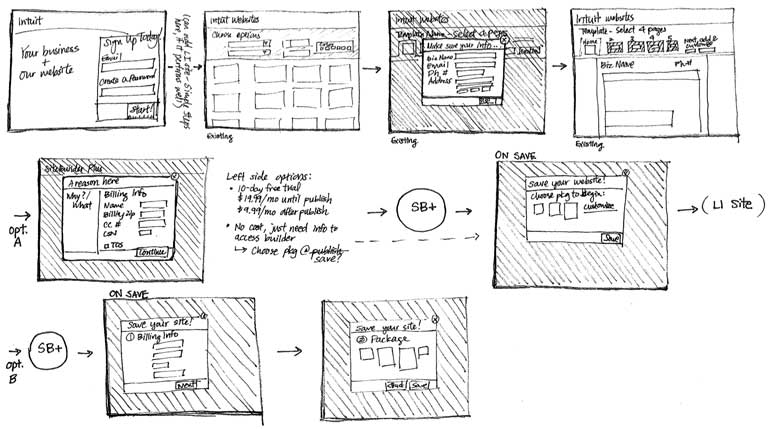 Intuit
Your business
+
Our website
Sign Up Today!
Email
Create a Password
Start!
Intuit Websites
Choose options
Existing
Intuit Websites
Template Name - Select 4 pages
Make sure your Info...
Biz Name
Email
Ph #
Address
Existing
Intuit Websites
Template - Select 4 pages
Home
2
3
4
5
Next, add &
customize
Biz Name
Ph #
Existing
opt.
A
SiteBuilder Plus
A reason here
Why?/
What
Billing Info
Name
Billing Zip
CC #
CSN
TOS
Continue
Left side options:
• 10-day free trial
$19.99/mo until publish
$9.99/mo after publish
• No cost, just need info to
access builder
↳ Choose pkg @ publish
save?
SB+
ON SAVE
Save your website!
Choose pkg to begin:
customize
Save
(LI Site)
opt.
B
SB+
ON SAVE
Save your site!
① Billing Info
Next
Save your site!
② Package
Save